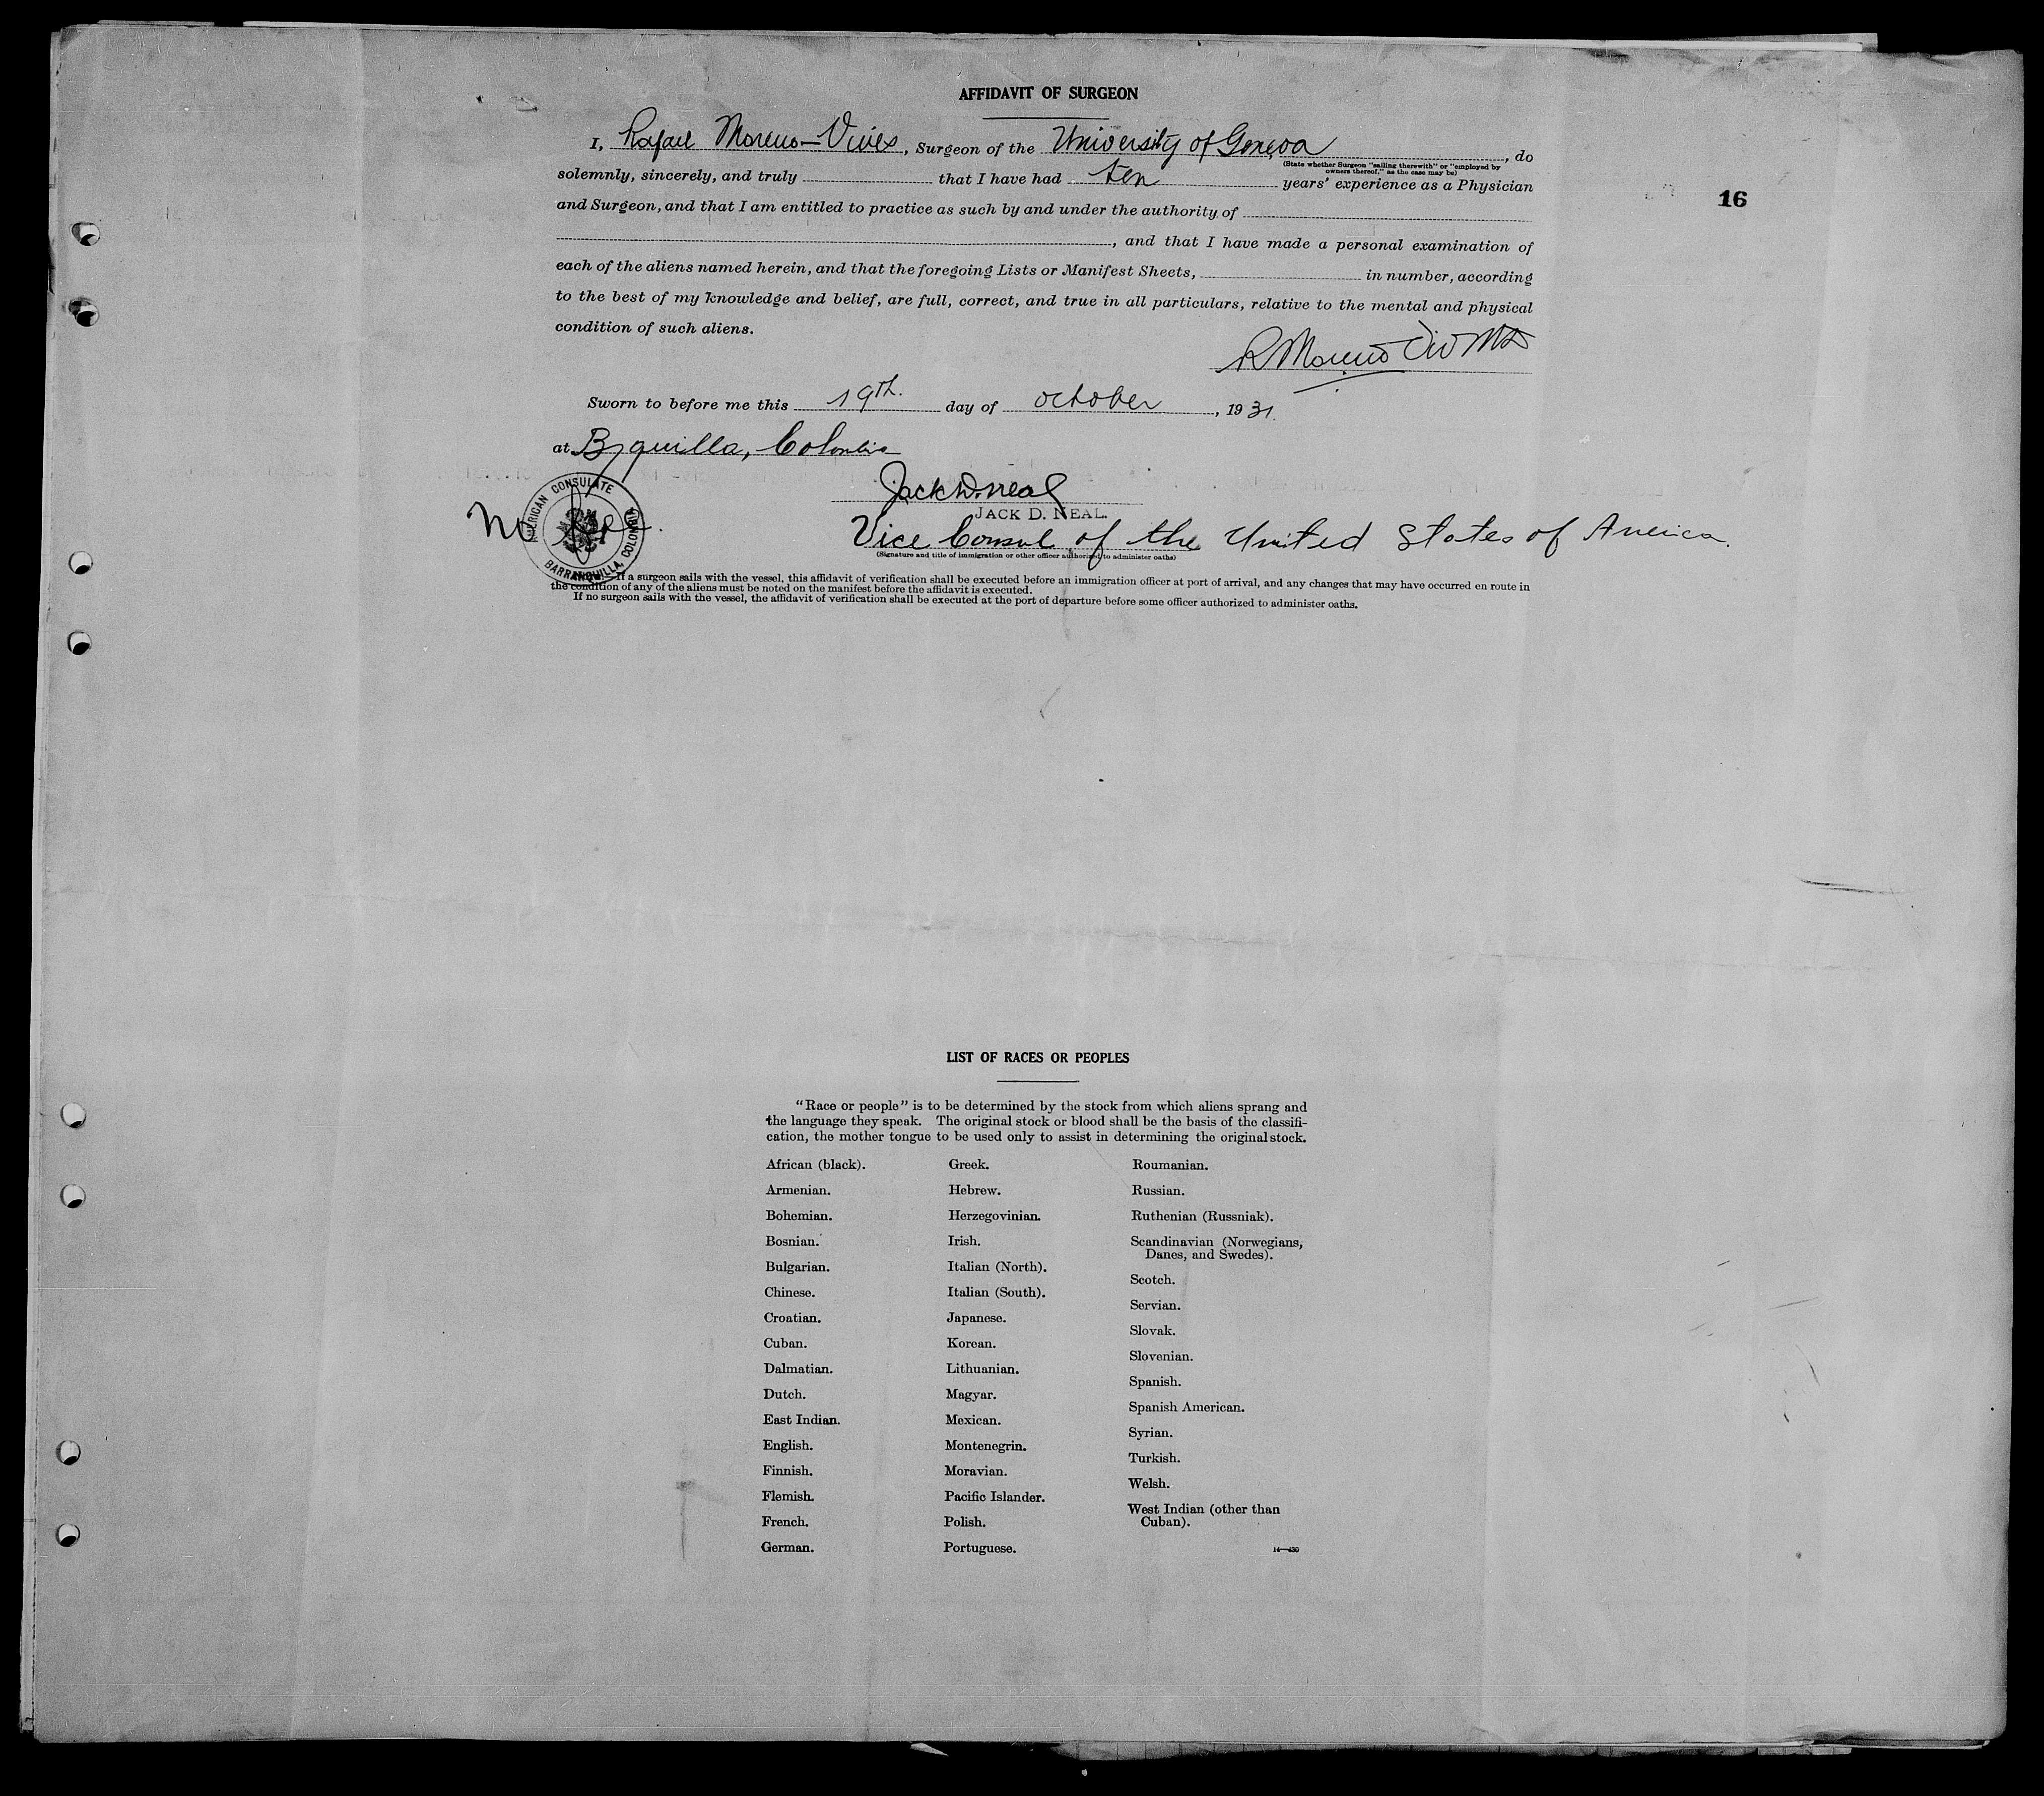 AFFIDAVIT OF SURGEON
16
I, Rafael Moreno-Vives, Surgeon of the University of Geneva, do
(State whether Surgeon "sailing therewith" or "employed by
owners thereof," as the case may be)
solemnly, sincerely, and truly that I have had ten years' experience as a Physician
and Surgeon, and that I am entitled to practice as such by and under the authority of
, and that I have made a personal examination of
each of the aliens named herein, and that the foregoing Lists or Manifest Sheets, in number, according
to the best of my knowledge and belief, are full, correct, and true in all particulars, relative to the mental and physical
condition of such aliens.
R Moreno Viv MD
Sworn to before me this 19th. day of October, 1931.
at B/quilla, Colombia
AMERICAN CONSULATE
BARRANQUILLA, COLOMBIA
No fee.
Jack D. Neal
JACK D. NEAL.
Vice Consul of the United States of America.
(Signature and title of immigration or other officer authorized to administer oaths)
If a surgeon sails with the vessel, this affidavit of verification shall be executed before an immigration officer at port of arrival, and any changes that may have occurred en route in
the condition of any of the aliens must be noted on the manifest before the affidavit is executed.
If no surgeon sails with the vessel, the affidavit of verification shall be executed at the port of departure before some officer authorized to administer oaths.
LIST OF RACES OR PEOPLES
"Race or people" is to be determined by the stock from which aliens sprang and
the language they speak. The original stock or blood shall be the basis of the classifi-
cation, the mother tongue to be used only to assist in determining the original stock.
African (black).
Armenian.
Bohemian.
Bosnian.
Bulgarian.
Chinese.
Croatian.
Cuban.
Dalmatian.
Dutch.
East Indian.
English.
Finnish.
Flemish.
French.
German.
Greek.
Hebrew.
Herzegovinian.
Irish.
Italian (North).
Italian (South).
Japanese.
Korean.
Lithuanian.
Magyar.
Mexican.
Montenegrin.
Moravian.
Pacific Islander.
Polish.
Portuguese.
Roumanian.
Russian.
Ruthenian (Russniak).
Scandinavian (Norwegians,
Danes, and Swedes).
Scotch.
Servian.
Slovak.
Slovenian.
Spanish.
Spanish American.
Syrian.
Turkish.
Welsh.
West Indian (other than
Cuban).
14—430